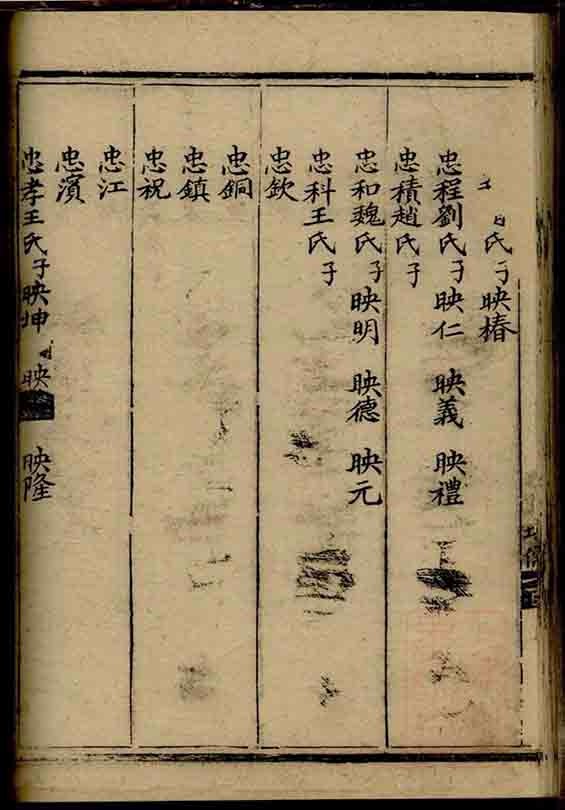 氏子映椿
忠程劉氏子映仁 映義 映禮
忠積趙氏子
忠和魏氏子映明 映德 映元
忠科王氏子
忠欽
忠銅
忠鎮
忠祝
忠江
忠濱
忠孝王氏子映坤 映 映隆